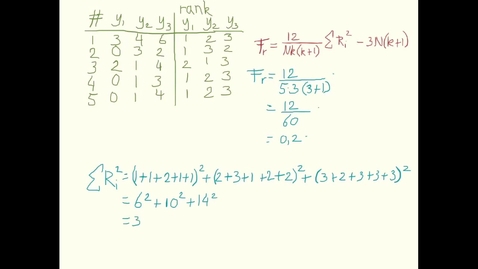 rank
# y₁ y₂ y₃ y₁ y₂ y₃
1 3 4 6 1 2 3
2 0 3 2 1 3 2
3 2 1 4 2 1 3
4 0 1 3 1 2 3
5 0 1 4 1 2 3
Fᵣ = 12/Nk(k+1) ∑Rᵢ² − 3N(k+1)
Fᵣ = 12/5·3(3+1)
= 12/60
= 0,2
∑Rᵢ² = (1+1+2+1+1)² + (2+3+1+2+2)² + (3+2+3+3+3)²
= 6² + 10² + 14²
= 3